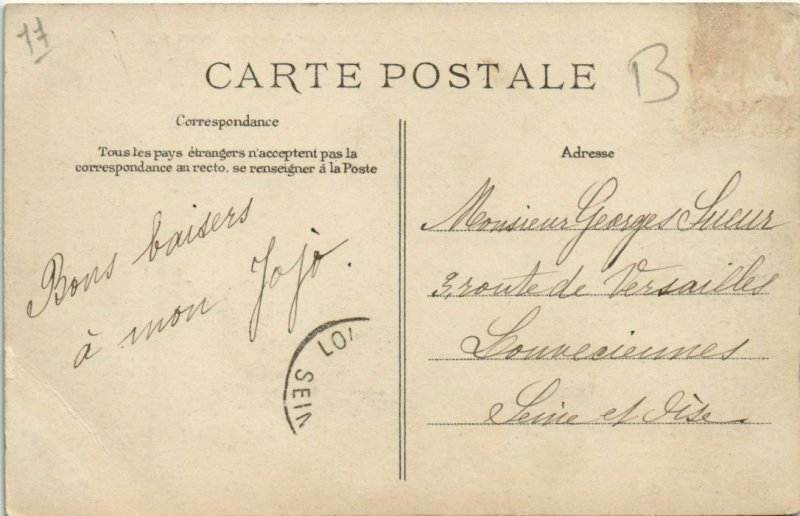 17
CARTE POSTALE
B
Correspondance
Tous les pays étrangers n'acceptent pas la
correspondance au recto, se renseigner à la Poste
Bons baisers
à mon Jojo.
LO
SEIN
Adresse
Monsieur Georges Sueur
3, route de Versailles
Louveciennes
Seine et Oise